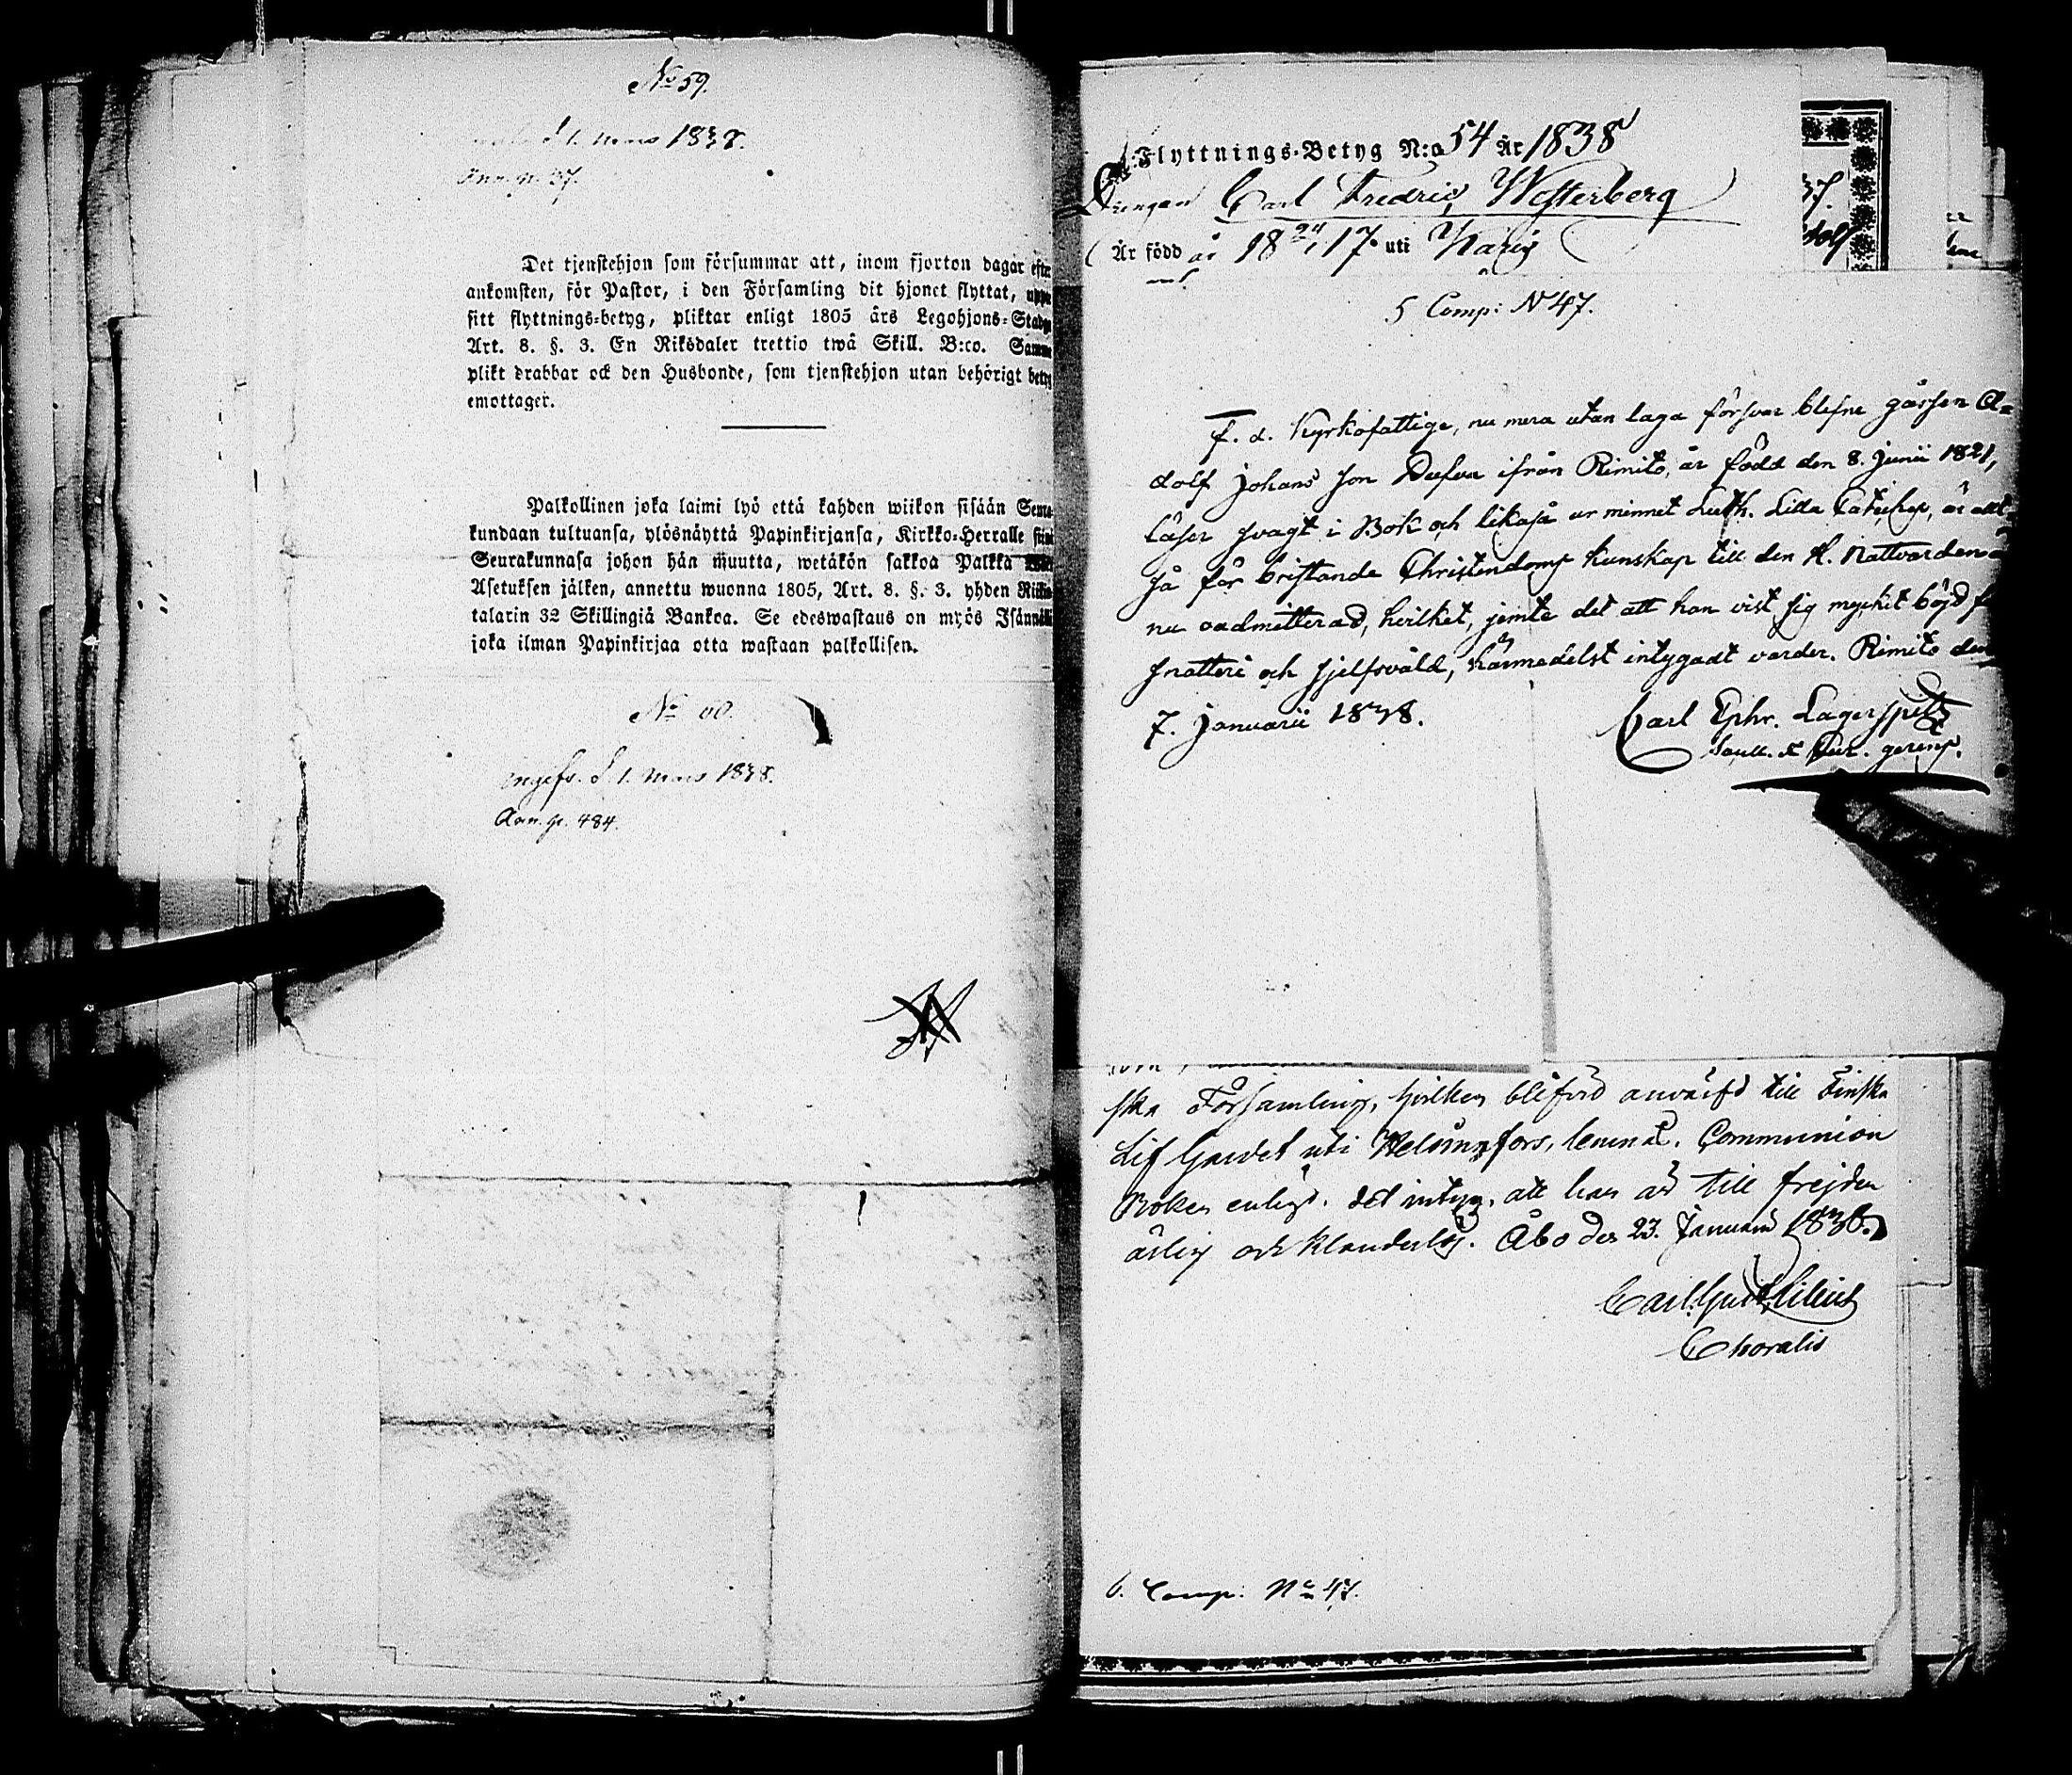 No 59.
d. 1. Mars 1838.
Ann. p. 37.
Det tjenstehjon som försummar att, inom fjorton dagar efter
ankomsten, för Pastor, i den Församling dit hjonet flyttat, uppe
sitt flyttnings-betyg, pliktar enligt 1805 års Legohjons-Stadga
Art. 8. §. 3. En Riksdaler trettio twå Skill. B:co. Samma
plikt drabbar ock den Husbonde, som tjenstehjon utan behörigt betyg
emottager.
Palkollinen joka laimi lyö että kahden wiikon sisään Seura-
kundaan tultuansa, ylösnäyttä Papinkirjansa, Kirkko-Herralle siinä
Seurakunnasa johon hän muutta, wetäkön sakkoa Palkka
Asetuksen jälken, annettu wuonna 1805, Art. 8. §. 3. yhden Riikin
talarin 32 Skillingiä Bankoa. Se edeswastaus on myös Isännällä
joka ilman Papinkirjaa otta wastaan palkollisen.
No 60.
Ingifv. d. 1. Mars 1838.
Ann. p. 484.
Flyttnings-Betyg N:o 54 År 1838
Drengen Carl Fredric Westerberg
Är född år 18 24/1 17 uti Karis
5 Comp: N 47.
F. d. Kyrkofattige, nu mera utan laga försvar blefne gåssen A-
dolf Johans son Dufva ifrån Rimito, är född den 8. Junii 1821,
läser svagt i Bok och likaså ur minnet Luth. Lilla Cateches, är allt-
så för bristande Christendoms kunskap till den H. Nattvarden ä
nu oadmitterad, hvilket, jemte det att han vist sig mycket böjd f
snatteri och sjelfsvåld, härmedelst intygadt varder. Rimito den
7. Januarii 1838.
Carl Ephr. Lagerspetz
ska Församling, hvilken blifvid anvärfd till Finska
Lif Gardet uti Helsingfors, lemnas. Communion
Boken enligt. det intyg, att han är till frejden
ärlig och klanderlös. Åbo den 23. Januarii 1838.
Carl Gust.
Choralis
6. Comp: No 47.